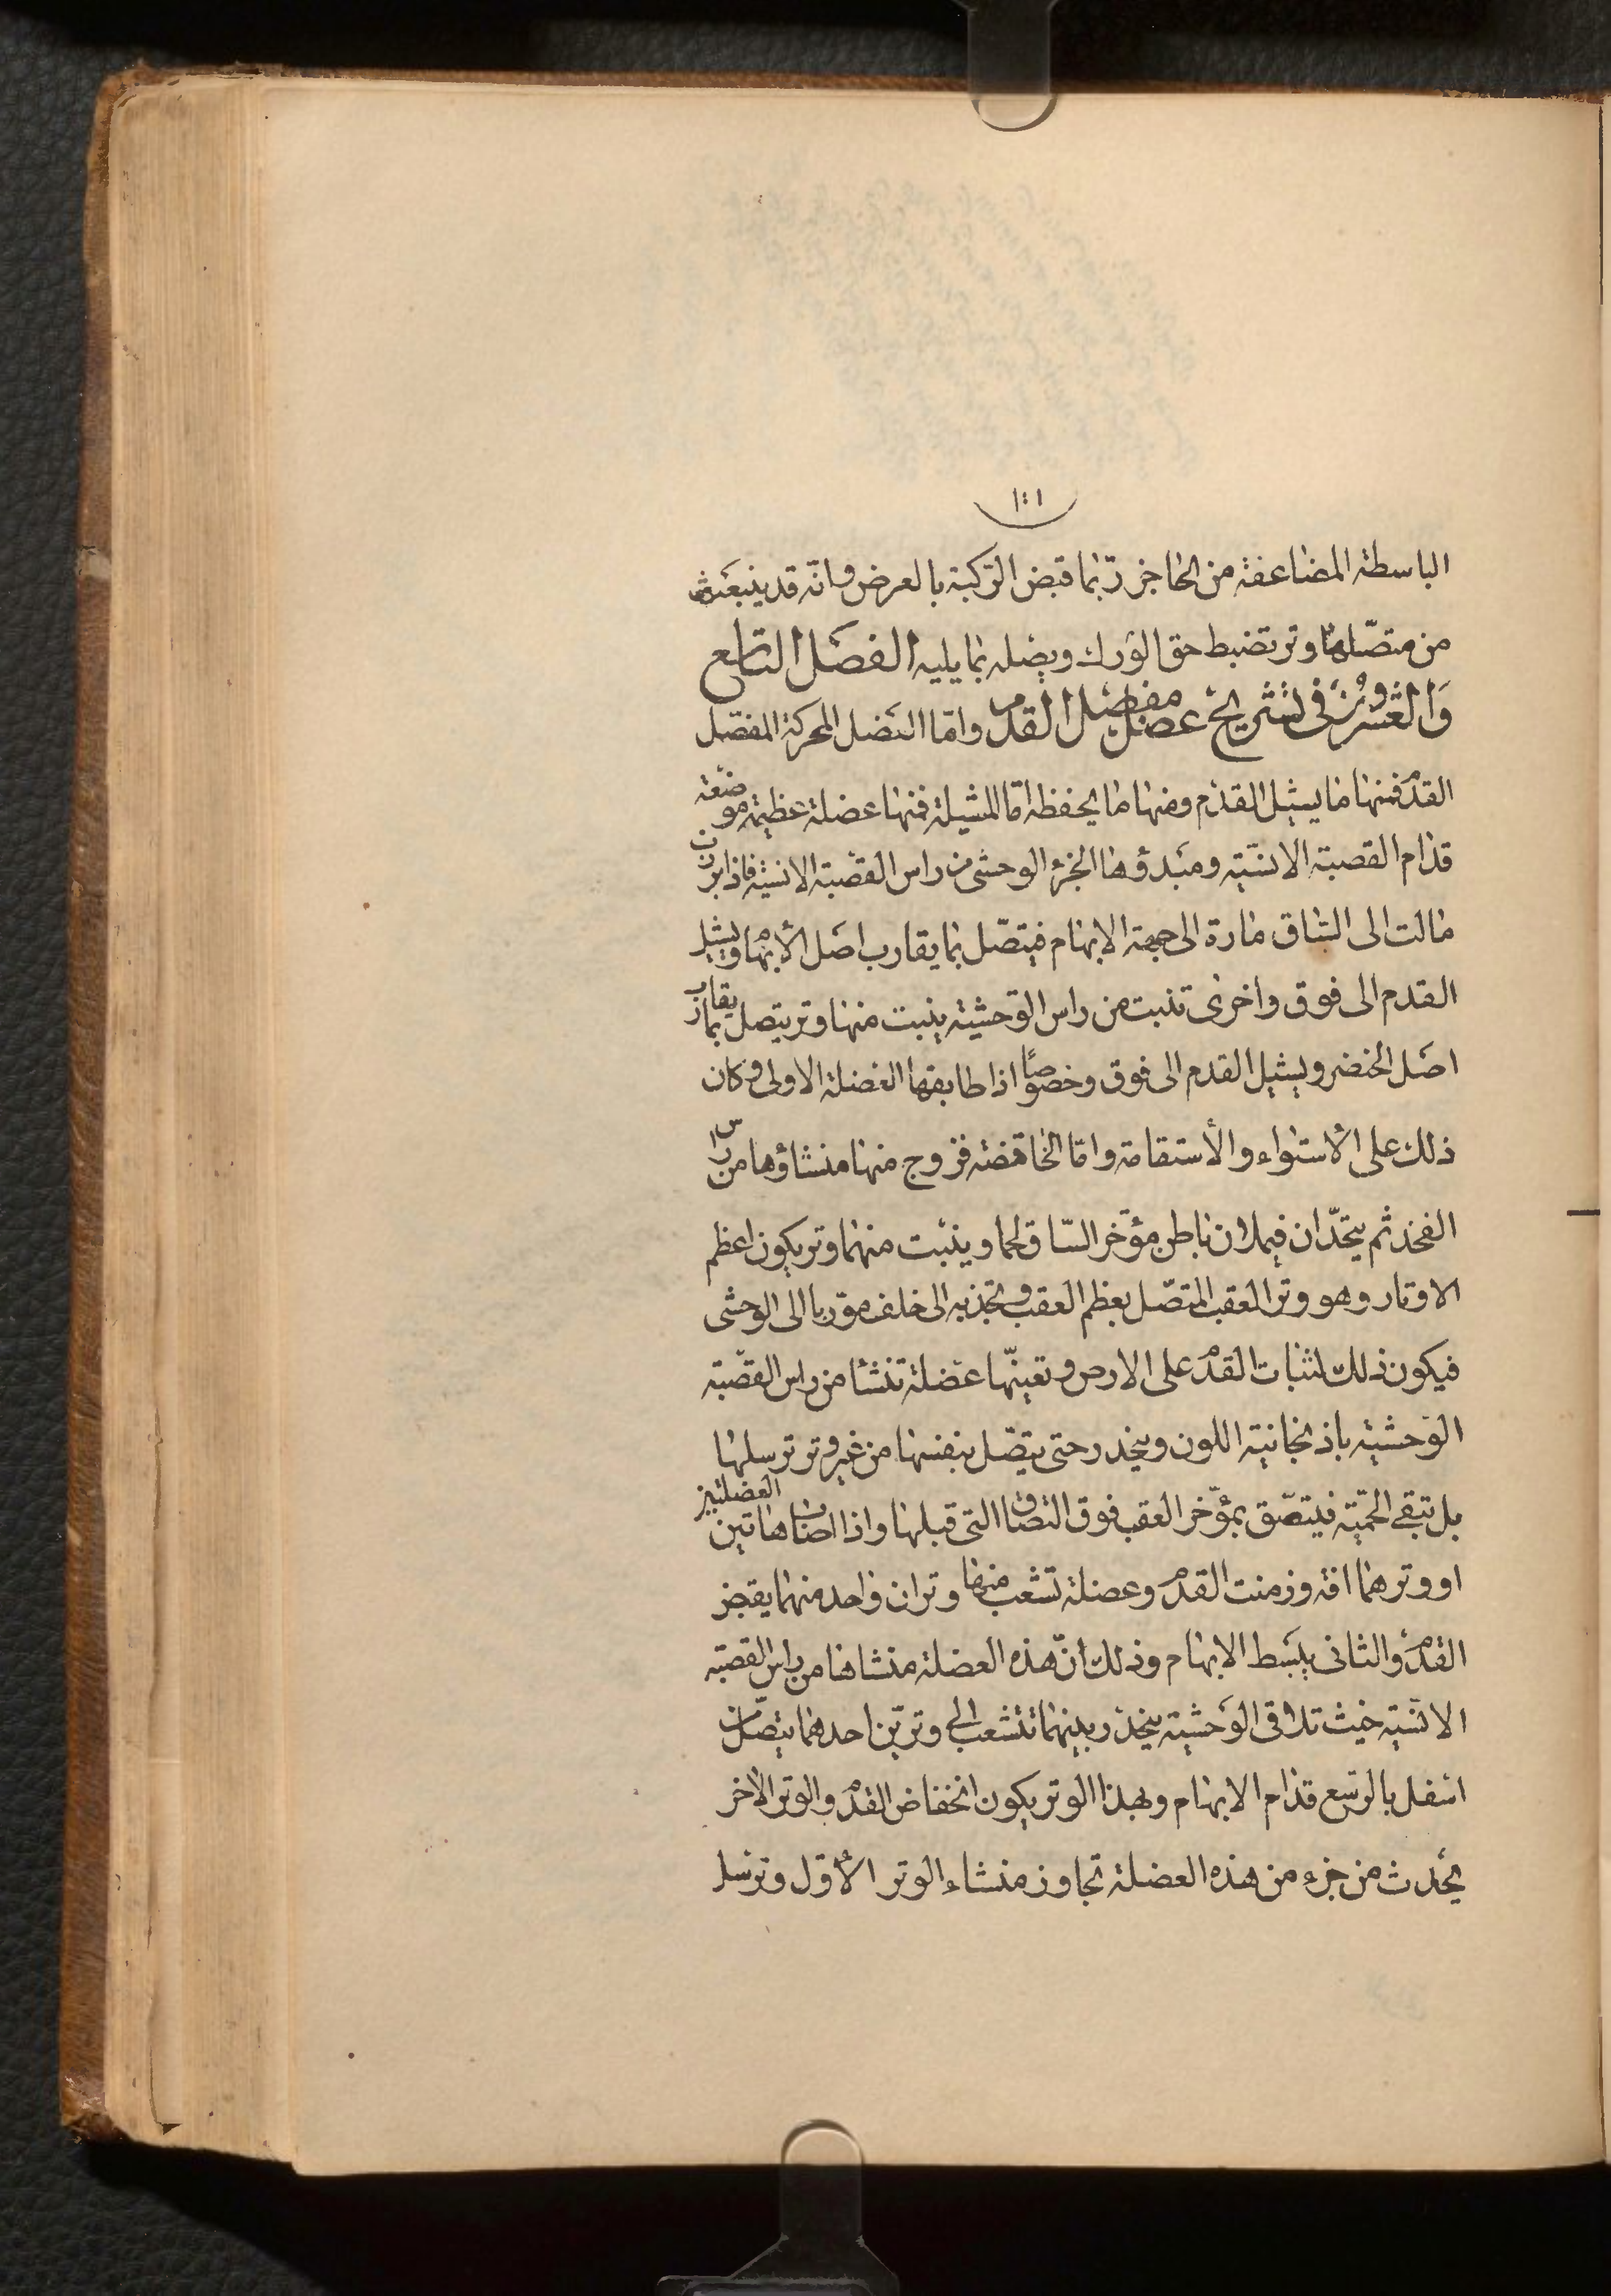 ١٠١
الباسطة المضاعفة من الحاجز ربما قبض الركبة بالعرض وانه قد ينبعث
من متصلهما وتر تضبط حق الورك ويصله بما يليه الفصل التاسع
والعشرون فى تشريح عضل مفصل القدم واما العضل المحركة المفصل
القدم فمنها ما يشيل القدم ومنها ما يخفظه اما المشيلة فمنها عضلة عظيمة موضعة
قدام القصبة الانسية ومبدؤها الجزء الوحشى من راس القصبة الانسية فاذا برزت
مالت الى الساق مارة الى جهة الابهام فيتصل بما يقارب اصل الابهام ويشيل
القدم الى فوق واخرى تنبت من راس الوحشية ينبت منها وتر يتصل بما يقارب
اصل الخنصر ويشيل القدم الى فوق وخصوصا اذا طابقها العضلة الاولى وكان
ذلك على الاستواء والاستقامة واما الخافضة فزوج منها منشاؤها من راس
الفخذ ثم يتحدان فيملان باطن مؤخر الساق لحما وينبت منهما وتر يكون اعظم
الاوتار وهو وتر العقب المتصل بعظم العقب ويجذبه الى خلف موربا الى الوحشى
فيكون ذلك لثبات القدم على الارض وتعينها عضلة تنشا من راس القصبة
الوحشية باذنجانية اللون وينحدر حتى يتصل بنفسها من غير وتر ترسلها
بل تبقى لحمية فيتصق بمؤخر العقب فوق التصاق التى قبلها واذا اصاب هاتين العضلتين
او وترهما افة وزمنت القدم وعضلة تشعب منها وتران واحد منهما يقبض
القدم والثانى يبسط الابهام وذلك ان هذه العضلة منشاها من راس القصبة
الانسية حيث تلاقى الوحشية ينحدر بينهما تتشعب الى وترين احدهما يتصل من
اسفل بالرسغ قدام الابهام وبهذا الوتر يكون انخفاض القدم والوتر الاخر
يحدث من جزء من هذه العضلة تجاوز منشاء الوتر الاول وترسل